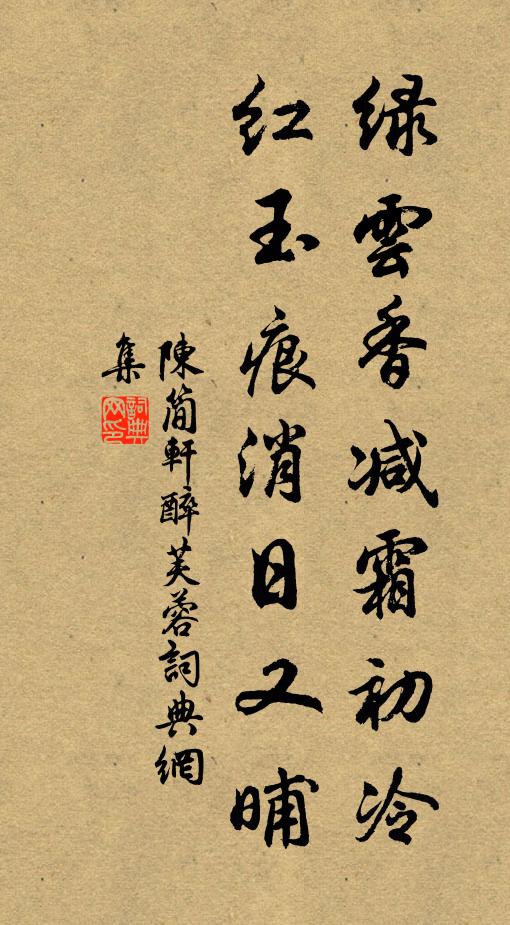 绿雲香减霜初冷
红玉痕消日又晡
陳简軒醉芙蓉詞典網
集
詞典网印